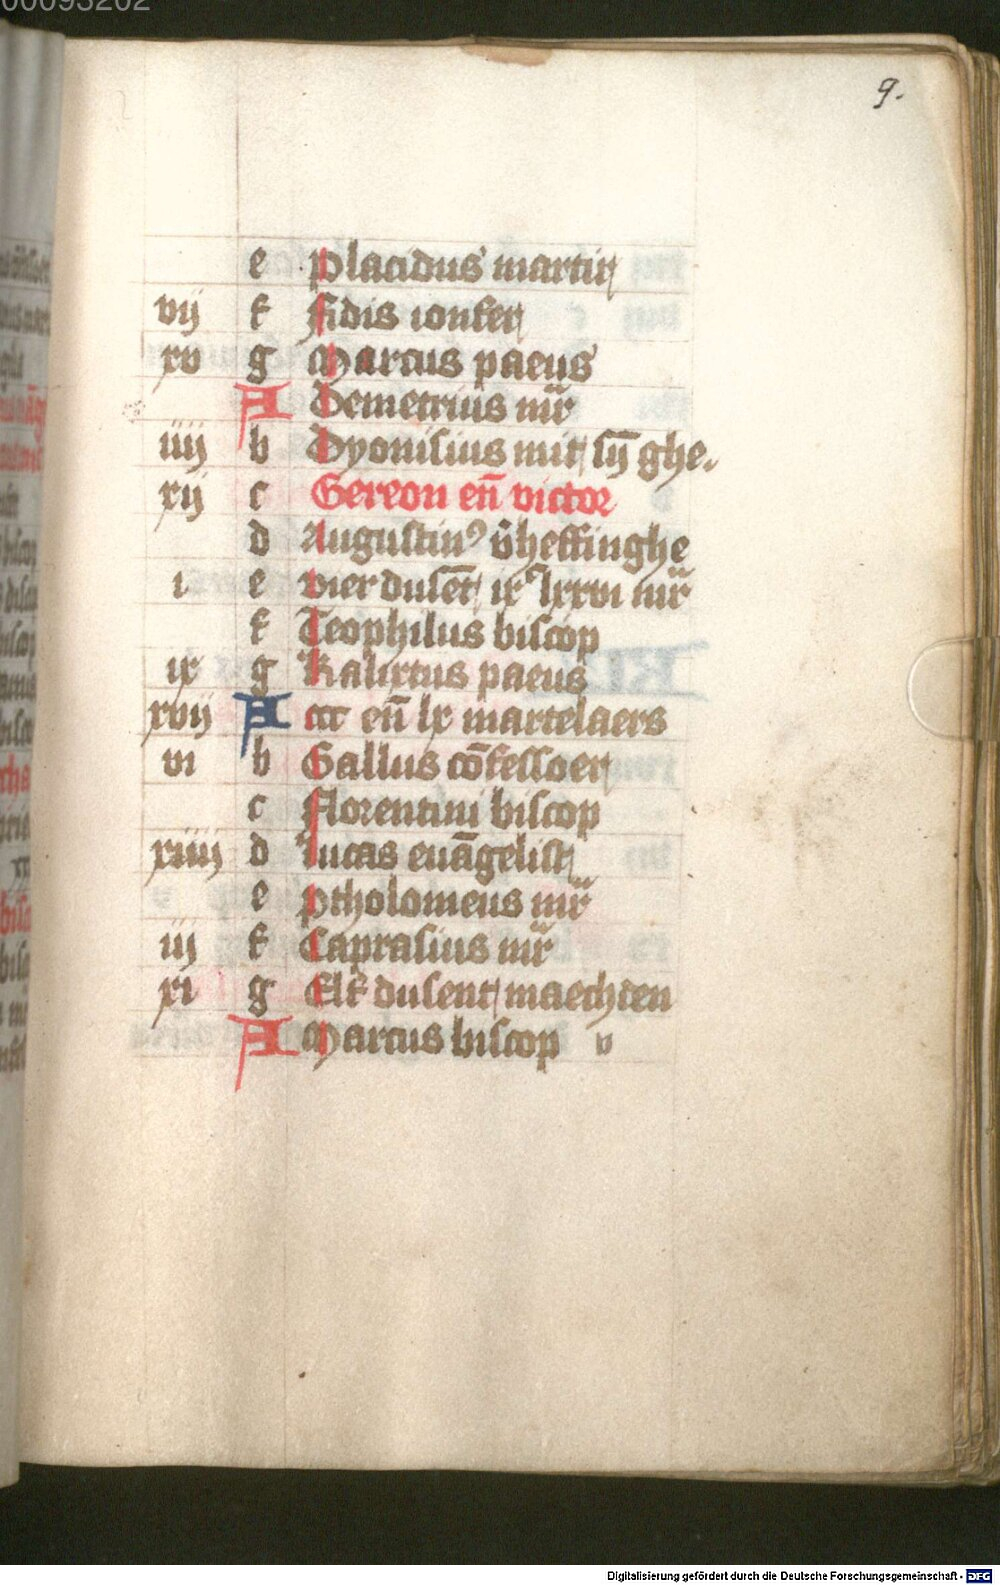 00093202
9.
e placidus martir
vij f Fidis ionfer
xv g Marcus paeus
A Demetrius mr̄
iiij b Dyonisius mit sȳ ghe.
xij c Gereon en̄ victor
d Augustin⁹ v̄ heffinghe
i e vier dusēt ixᶜ lxxvi mr̄
f Teophilus biscop
ix g Kalixtus paeus
xvij A ccc en̄ lx martelaers
vi b Gallus cōfessoer
c Florentini biscop
xiiij d Lucas euāgelist
e ptholomeus mr̄
iij f Caprasius mr̄
xi g Elf dusent maechden
A Marcus biscop v
Digitalisierung gefördert durch die Deutsche Forschungsgemeinschaft - DFG